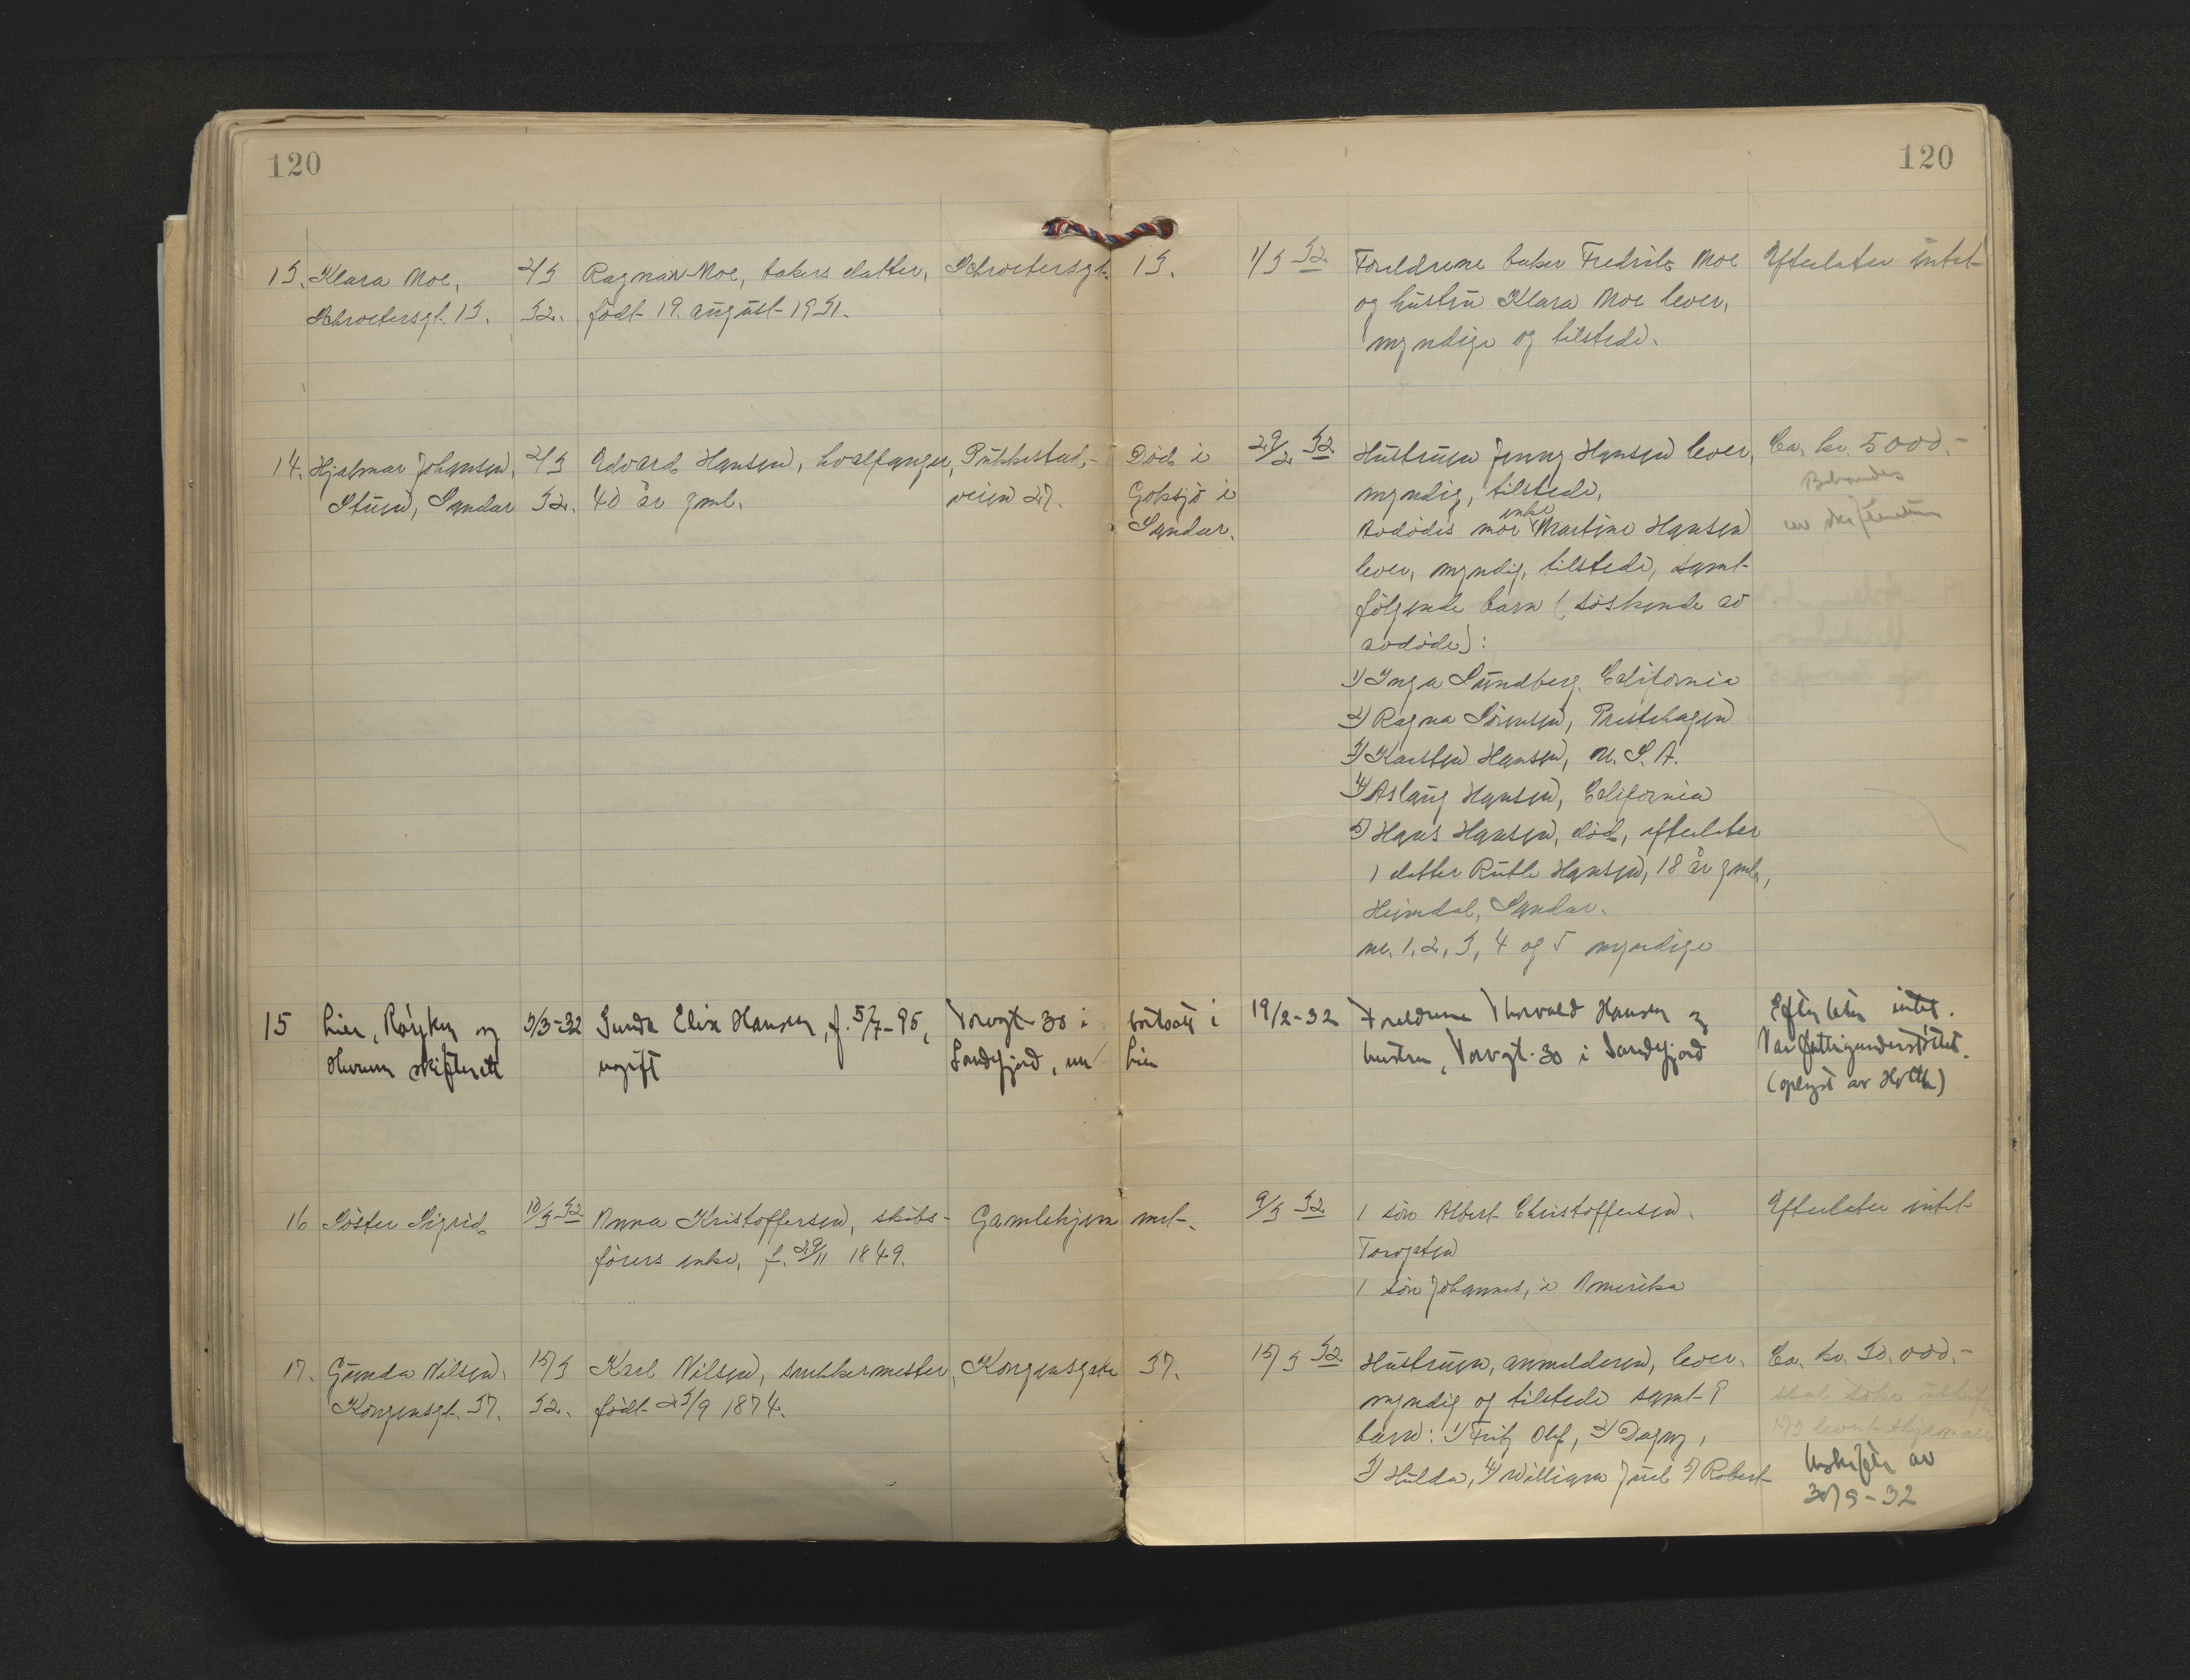 120
120
13. Klara Moe, 2/3 Ragnar Moe, bakers datter, Schroetersgt. 13. 1/3 32 Foreldrene baker Fredrik Moe Efterlater intet
Schroetersgt. 13. 32. født 19. august 1931. og hustru Klara Moe lever,
myndige og tilstede.
14. Hjalmar Johansen, 2/3 Edvard Hansen, hvalfanger, Pukkestad- Død i 29/2 32 Hustruen Jenny Hansen lever, Ca. kr. 5000.-
Stuen, Sandar 32. 40 år gml. veien 27. Goksjø i myndig, tilstede, Behandles
Sandar. Avdødes mor enke Martine Hansen av skifteretten
lever, myndig, tilstede, samt
følgende barn (søskende av
avdøde):
1) Inga Sundberg. California
2) Ragna Sörensen, Prestehagen
3) Karsten Hansen, U. S. A.
4) Aslaug Hansen, California
5) Hans Hansen, død, efterlater
1 datter Ruth Hansen, 18 år gml.,
Heimdal, Sandar.
nr. 1, 2, 3, 4 og 5 myndige
15 Lier, Røyken og 3/3-32 Gunda Elise Hansen, f. 5/7-95, Torvgt. 30 i bortsatt i 19/2-32 Foreldrene Thorvald Hansen og Efterlater intet.
Hurum skifterett ugift Sandefjord, nu Lier hustru, Torvgt. 30 i Sandefjord Var fattigunderstøttet.
(oplyst av Holth)
16 Söster Sigrid 10/3-32 Anna Kristoffersen, skibs- Gamlehjemmet. 9/3 32 1 sön Albert Christoffersen. Efterlater intet
förers enke, f. 29/11 1849. Torvgaten
1 sön Johannes, i Amerika
17. Gunda Nilsen. 15/3 Karl Nilsen, snekkermester, Kongensgate 37. 15/3 32 Hustruen, anmelderen, lever, Ca. kr. 30.000.-
Kongensgt. 37. 32. født 23/9 1874. myndig og tilstede samt 9 skal søke uskifte
barn: 1) Fritz Olaf, 2) Dagny,
3) Hulda, 4) William Juel 5) Robert Uskifte av
30/9-32